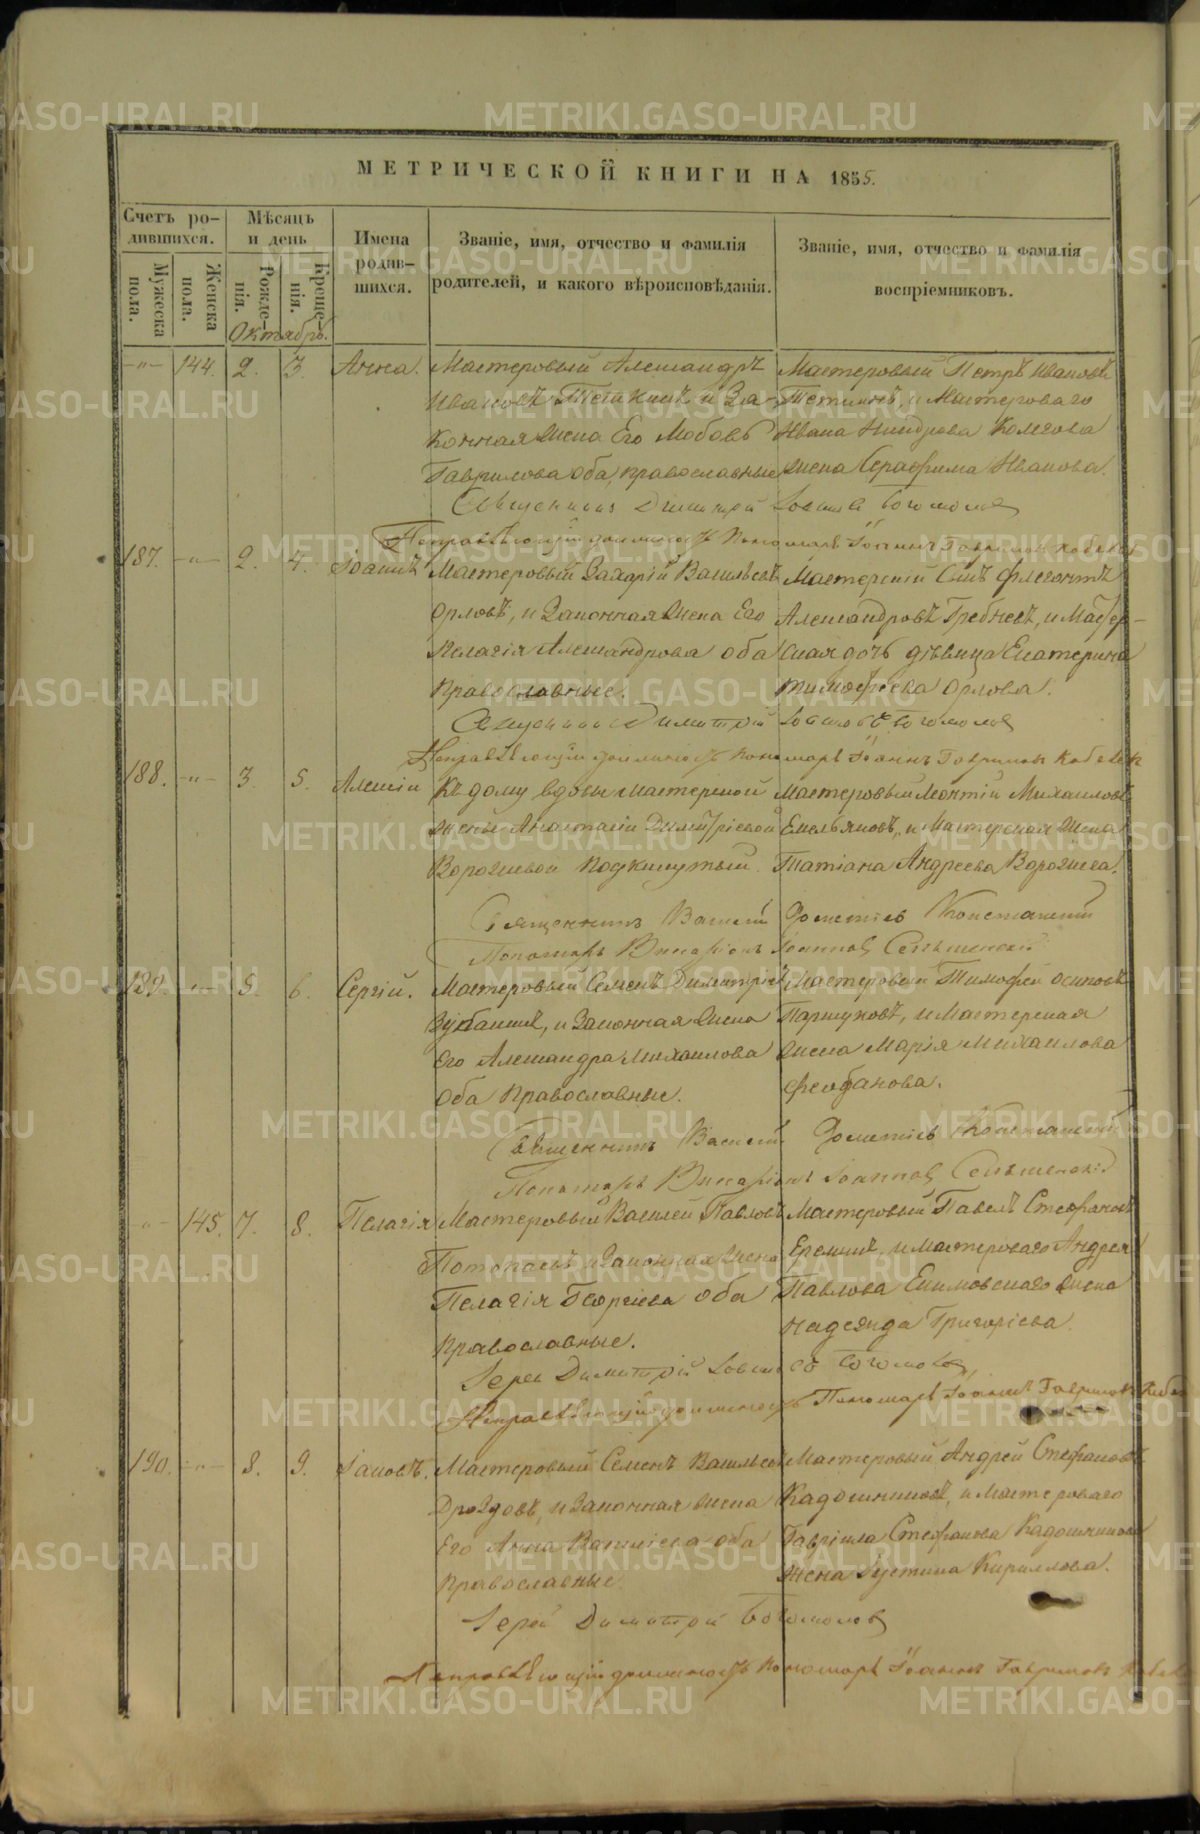 МЕТРИЧЕСКОЙ КНИГИ НА 1855.
Счетъ родившихся.
Мужеска пола.
Женска пола.
Мѣсяцъ и день
Рожденія.
Крещенія.
Имена родившихся.
Званіе, имя, отчество и фамилія родителей, и какого вѣроисповѣданія.
Званіе, имя, отчество и фамилія воспріемниковъ.
Октябрь.
-"- 144. 2. 3. Анна.
Мастеровый Александръ
Ивановъ и За-
конная жена Его Любовь
Гаврилова оба православные
Мастеровый Петръ Ивановъ
и Мастероваго
Ивана
жена Серафима Иванова.
Священникъ Димитрій Богомоловъ
Исправляющій должность Пономаря Іоаннъ Гавриловъ
187. -"- 2. 4. Іоаннъ
Мастеровый Захарій Васильевъ
Орловъ, и Законная жена Его
Пелагія Александрова оба
православные.
Мастерскій Сынъ Флегонтъ
Александровъ Гребневъ, и Мастер-
ская дочь дѣвица Екатерина
Тимофѣева Орлова.
Священникъ Димитрій Богомоловъ
Исправляющій должность Пономарь Іоаннъ Гавриловъ
188. -"- 3. 5. Алексій
Къ дому вдовы мастерской
жены Анастасіи Димитріевой
подкинутый.
Мастеровый Леонтій Михаиловъ
Емельяновъ, и Мастерская жена
Татіана Андреева
Священникъ Василій
Пономарь Виссаріонъ Іоанновъ
189. -"- 5. 6. Сергій.
Мастеровый Семенъ Димитріевъ
и Законная жена
Его Александра Михаилова
оба Православные.
Мастеровый Тимофей Осиповъ
Паршуковъ, и Мастерская
жена Марія Михаилова
Феофанова.
Священникъ Василій
Пономарь Виссаріонъ Іоанновъ
-"- 145. 7. 8. Пелагія
Мастеровый Василей Павловъ
Потопаевъ и Законная жена
Пелагія Георгіева оба
Православные.
Мастеровый Павелъ Стефановъ
и Мастероваго Андрея
Павлова Екимовскаго жена
Надежда Григоріева.
Іерей Димитрій Богомоловъ
Исправляющій должность Пономарь Іоаннъ Гавриловъ
190. -"- 8. 9. Іаковъ.
Мастеровый Семенъ Васильевъ
Дроздовъ, и Законная жена
Его Анна Василіева оба
Православные
Мастеровый Андрей Стефановъ
Кадошниковъ, и Мастероваго
Гавріила Стефанова Кадошникова
жена Іустина Кириллова.
Іерей Димитрій Богомоловъ
Исправляющій должность Пономарь Іоаннъ Гавриловъ
METRIKI.GASO-URAL.RU